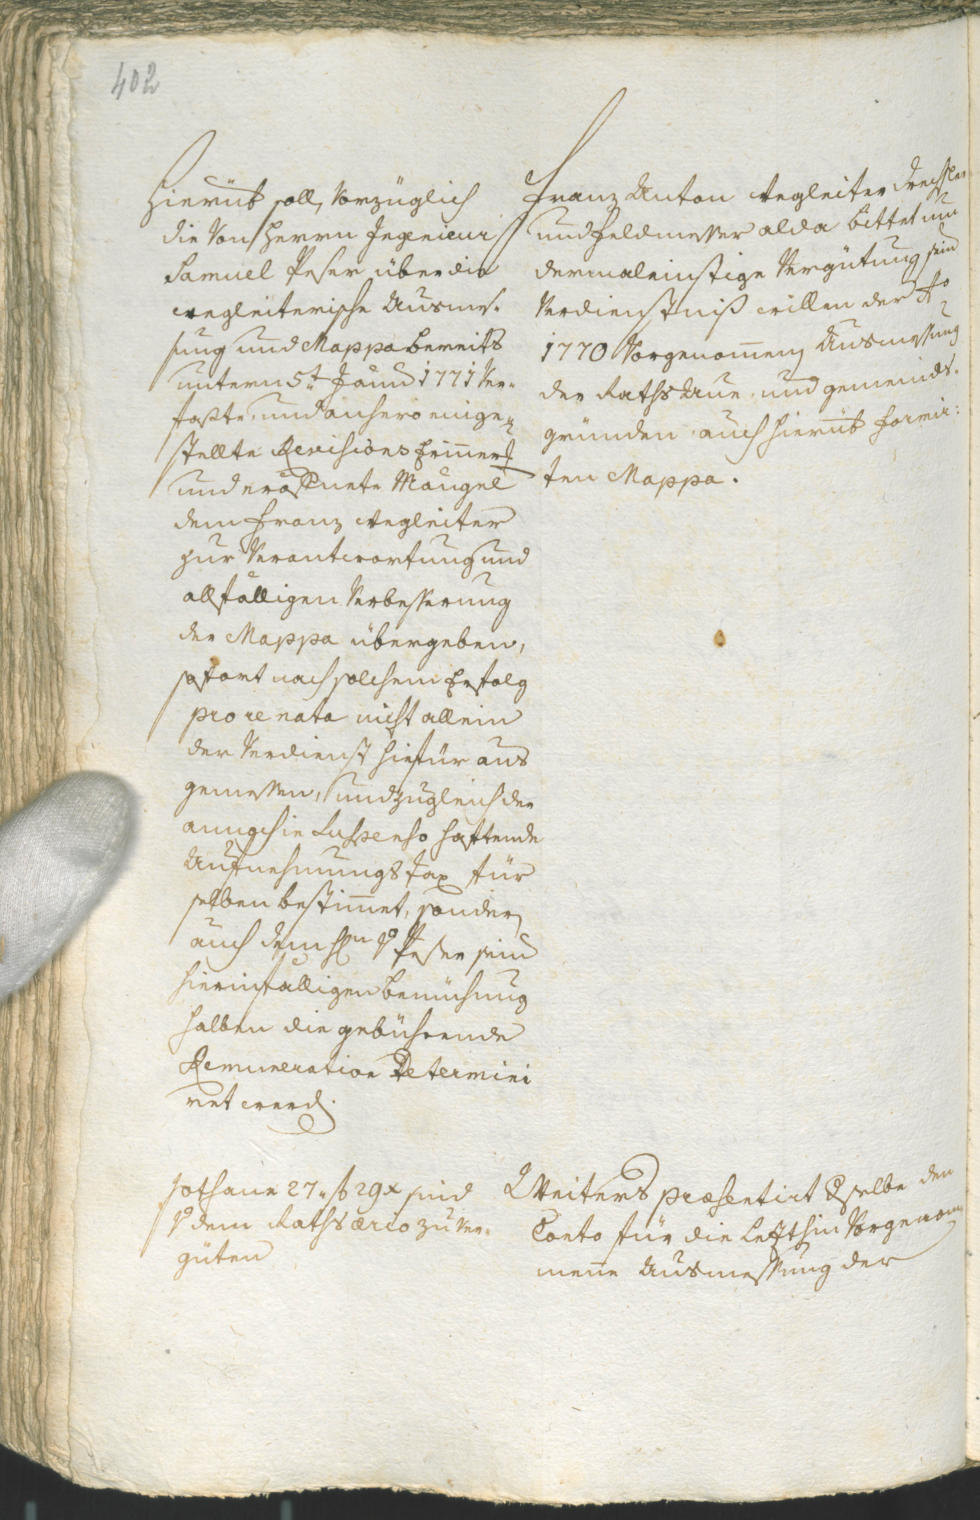 402
Hierüb soll, Vorzüglich
die Von Herrn Ingenieur
Samuel Peser über die
wegleiterische Ausmes-
sung und Mappa bereits
unterm 5t. Juny 1771 Ver-
faßte und anhero einge-
stellte Revisions Erinner
und eröffnete Mängel
dem Franz Wegleiter
zur Verantwortung und
allfälligen Verbesserung
der Mappa übergeben,
sofort nach solchem Erfolg
pro re nata nicht allein
der Verdienst hiefür aus
gemessen, und zugleich der
haftende
Aufnehmungs Tax für
selben bestimmet, sondern
auch dem Hn Peser seiner
hierinfälligen bemühung
halben die gebührende
Remuneration Determini
ret werd.
Franz Anton Wegleiter
und Feldmesser alda bittet um
dermaleinstige Vergütung sein
Verdienstniß willen der Ao
1770 Vorgenommenen Ausmessung
der Raths Aue, und gemeinds-
gründen auch hierüb formir-
ten Mappa.
Sothane 27 f 29 x sind
dem Raths ærio zu Ver-
güten
Weiters præsentirt dselbe den
Conto für die lesthin Vorgenom
mene Ausmessung der